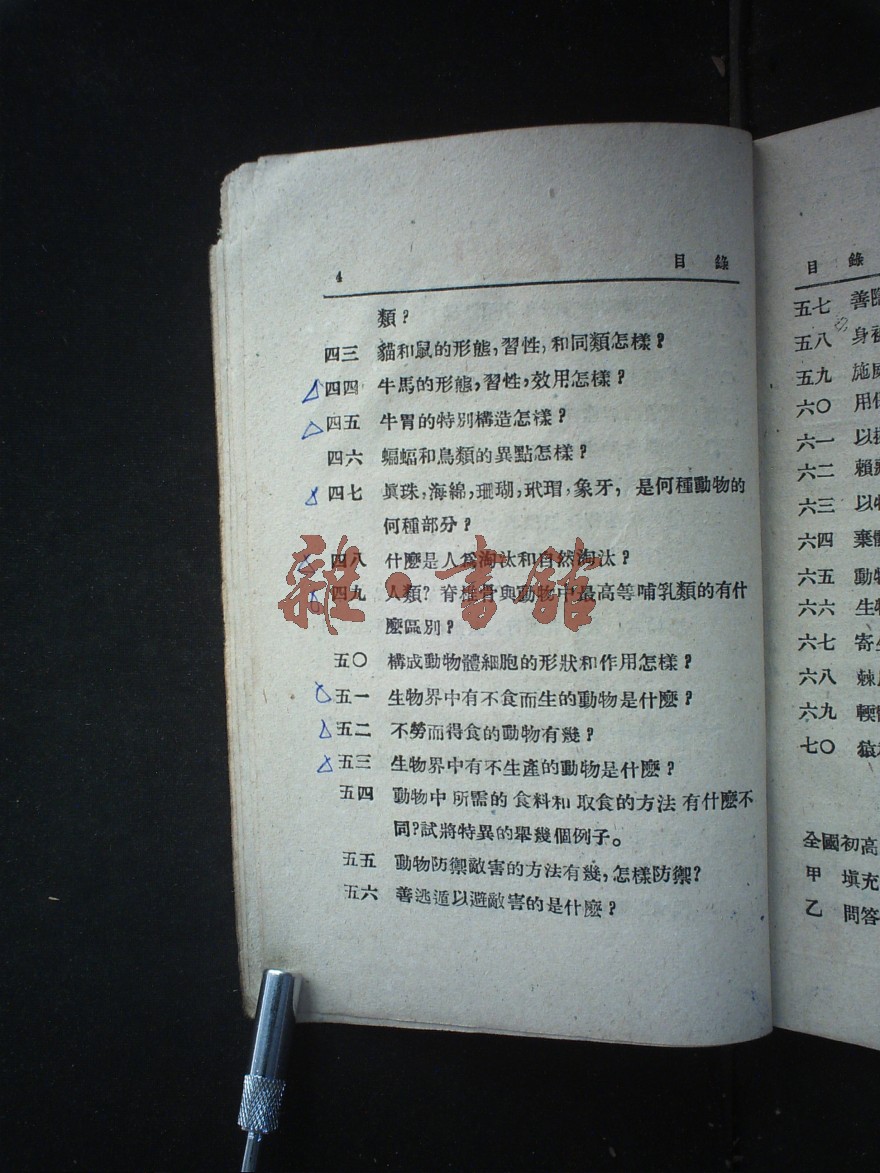 4 目錄
類？
四三 貓和鼠的形態，習性，和同類怎樣？
四四 牛馬的形態，習性，效用怎樣？
四五 牛胃的特別構造怎樣？
四六 蝙蝠和鳥類的異點怎樣？
四七 眞珠，海綿，珊瑚，玳瑁，象牙，是何種動物的
何種部分？
四八 什麼是人爲淘汰和自然淘汰？
四九 人類？脊椎骨與動物中最高等哺乳類的有什
麼區別？
五〇 構成動物體細胞的形狀和作用怎樣？
五一 生物界中有不食而生的動物是什麼？
五二 不勞而得食的動物有幾？
五三 生物界中有不生產的動物是什麼？
五四 動物中所需的食料和取食的方法有什麼不
同？試將特異的舉幾個例子。
五五 動物防禦敵害的方法有幾，怎樣防禦？
五六 善逃遁以避敵害的是什麼？
雜·書館
目錄
五七 善
五八 身
五九 施
六〇 用
六一 以
六二 賴
六三 以
六四 棄
六五 動
六六 生
六七 寄
六八 棘
六九
七〇 猿
全國初高
甲 填充
乙 問答